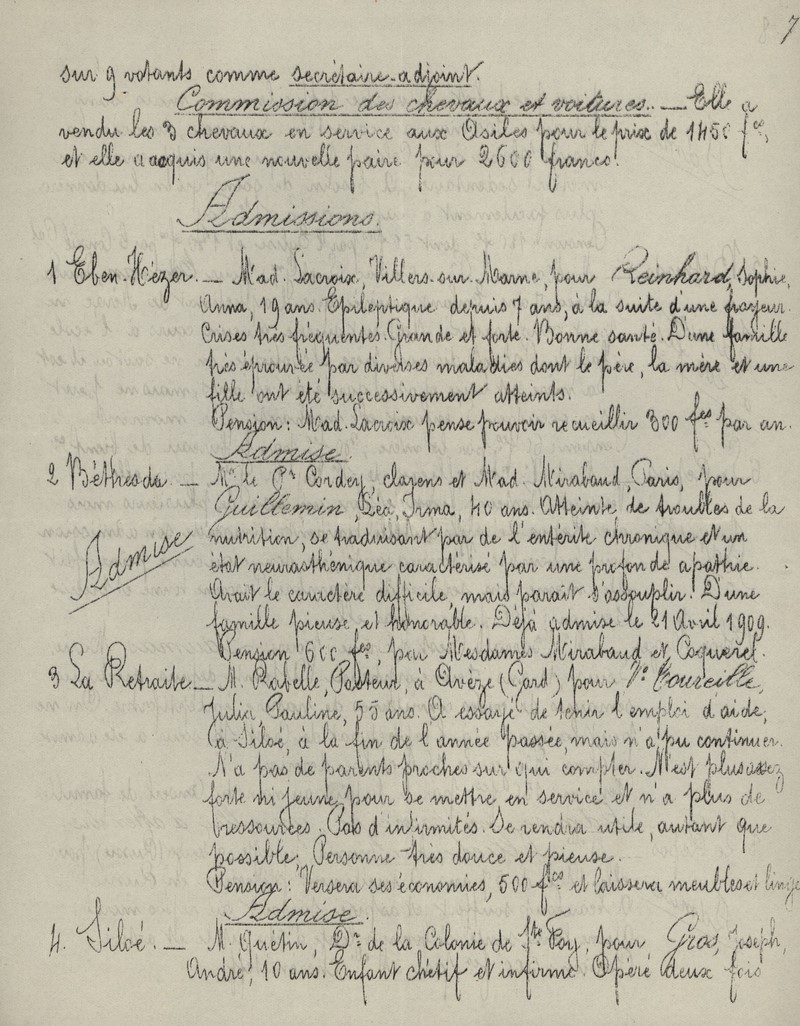 7
sur 9 votants comme secrétaire-adjoint.
Commission des chevaux et voitures. — Elle a
vendu les 3 chevaux en service aux Asiles pour le prix de 1450 fcs,
et elle a acquis une nouvelle paire pour 2600 francs.
Admissions.
1 Eben-Hézer. — Mad. Lacroix, Villers-sur-Marne, pour Reinhard, Sophie,
Anna, 19 ans. Epileptique depuis 7 ans, à la suite d'une frayeur.
Crises très fréquentes. Grande et forte. Bonne santé. D'une famille
très éprouvée par diverses maladies dont le père, la mère et une
fille ont été successivement atteints.
Pension: Mad. Lacroix pense pouvoir recueillir 300 fcs par an.
Admise.
2 Béthesda. — Mr. le Pr Cordey, Clarens et Mad. Mirabaud, Paris, pour
Guillemin, Léa, Irma, 40 ans. Atteinte de troubles de la
nutrition, se traduisant par de l'entérite chronique et un
Admise
état neurasthénique caractérisé par une profonde apathie.
Avait le caractère difficile, mais paraît s'assouplir. D'une
famille pieuse et honorable. Déjà admise le 21 Avril 1909.
Pension 600 fcs, par Mesdames Mirabaud et Coquerel.
3 La Retraite. — M. Rabelle, Pasteur, à Avèze (Gard) pour Ve Toureille,
Julia Pauline, 55 ans. A essayé de tenir l'emploi d'aide,
à Siloé, à la fin de l'année passée, mais n'a pu continuer.
N'a pas de parents proches sur qui compter. N'est plus assez
forte ni jeune pour se mettre en service et n'a plus de
ressources. Pas d'infirmités. Se rendra utile, autant que
possible. Personne très douce et pieuse.
Pension: Versera ses économies, 500 fcs et laissera meubles et linge
Admise.
4. Siloé. — M. Quétin, Dr de la Colonie de Ste Foy, pour Gros, Joseph,
André, 10 ans. Enfant chétif et infirme. Opéré deux fois